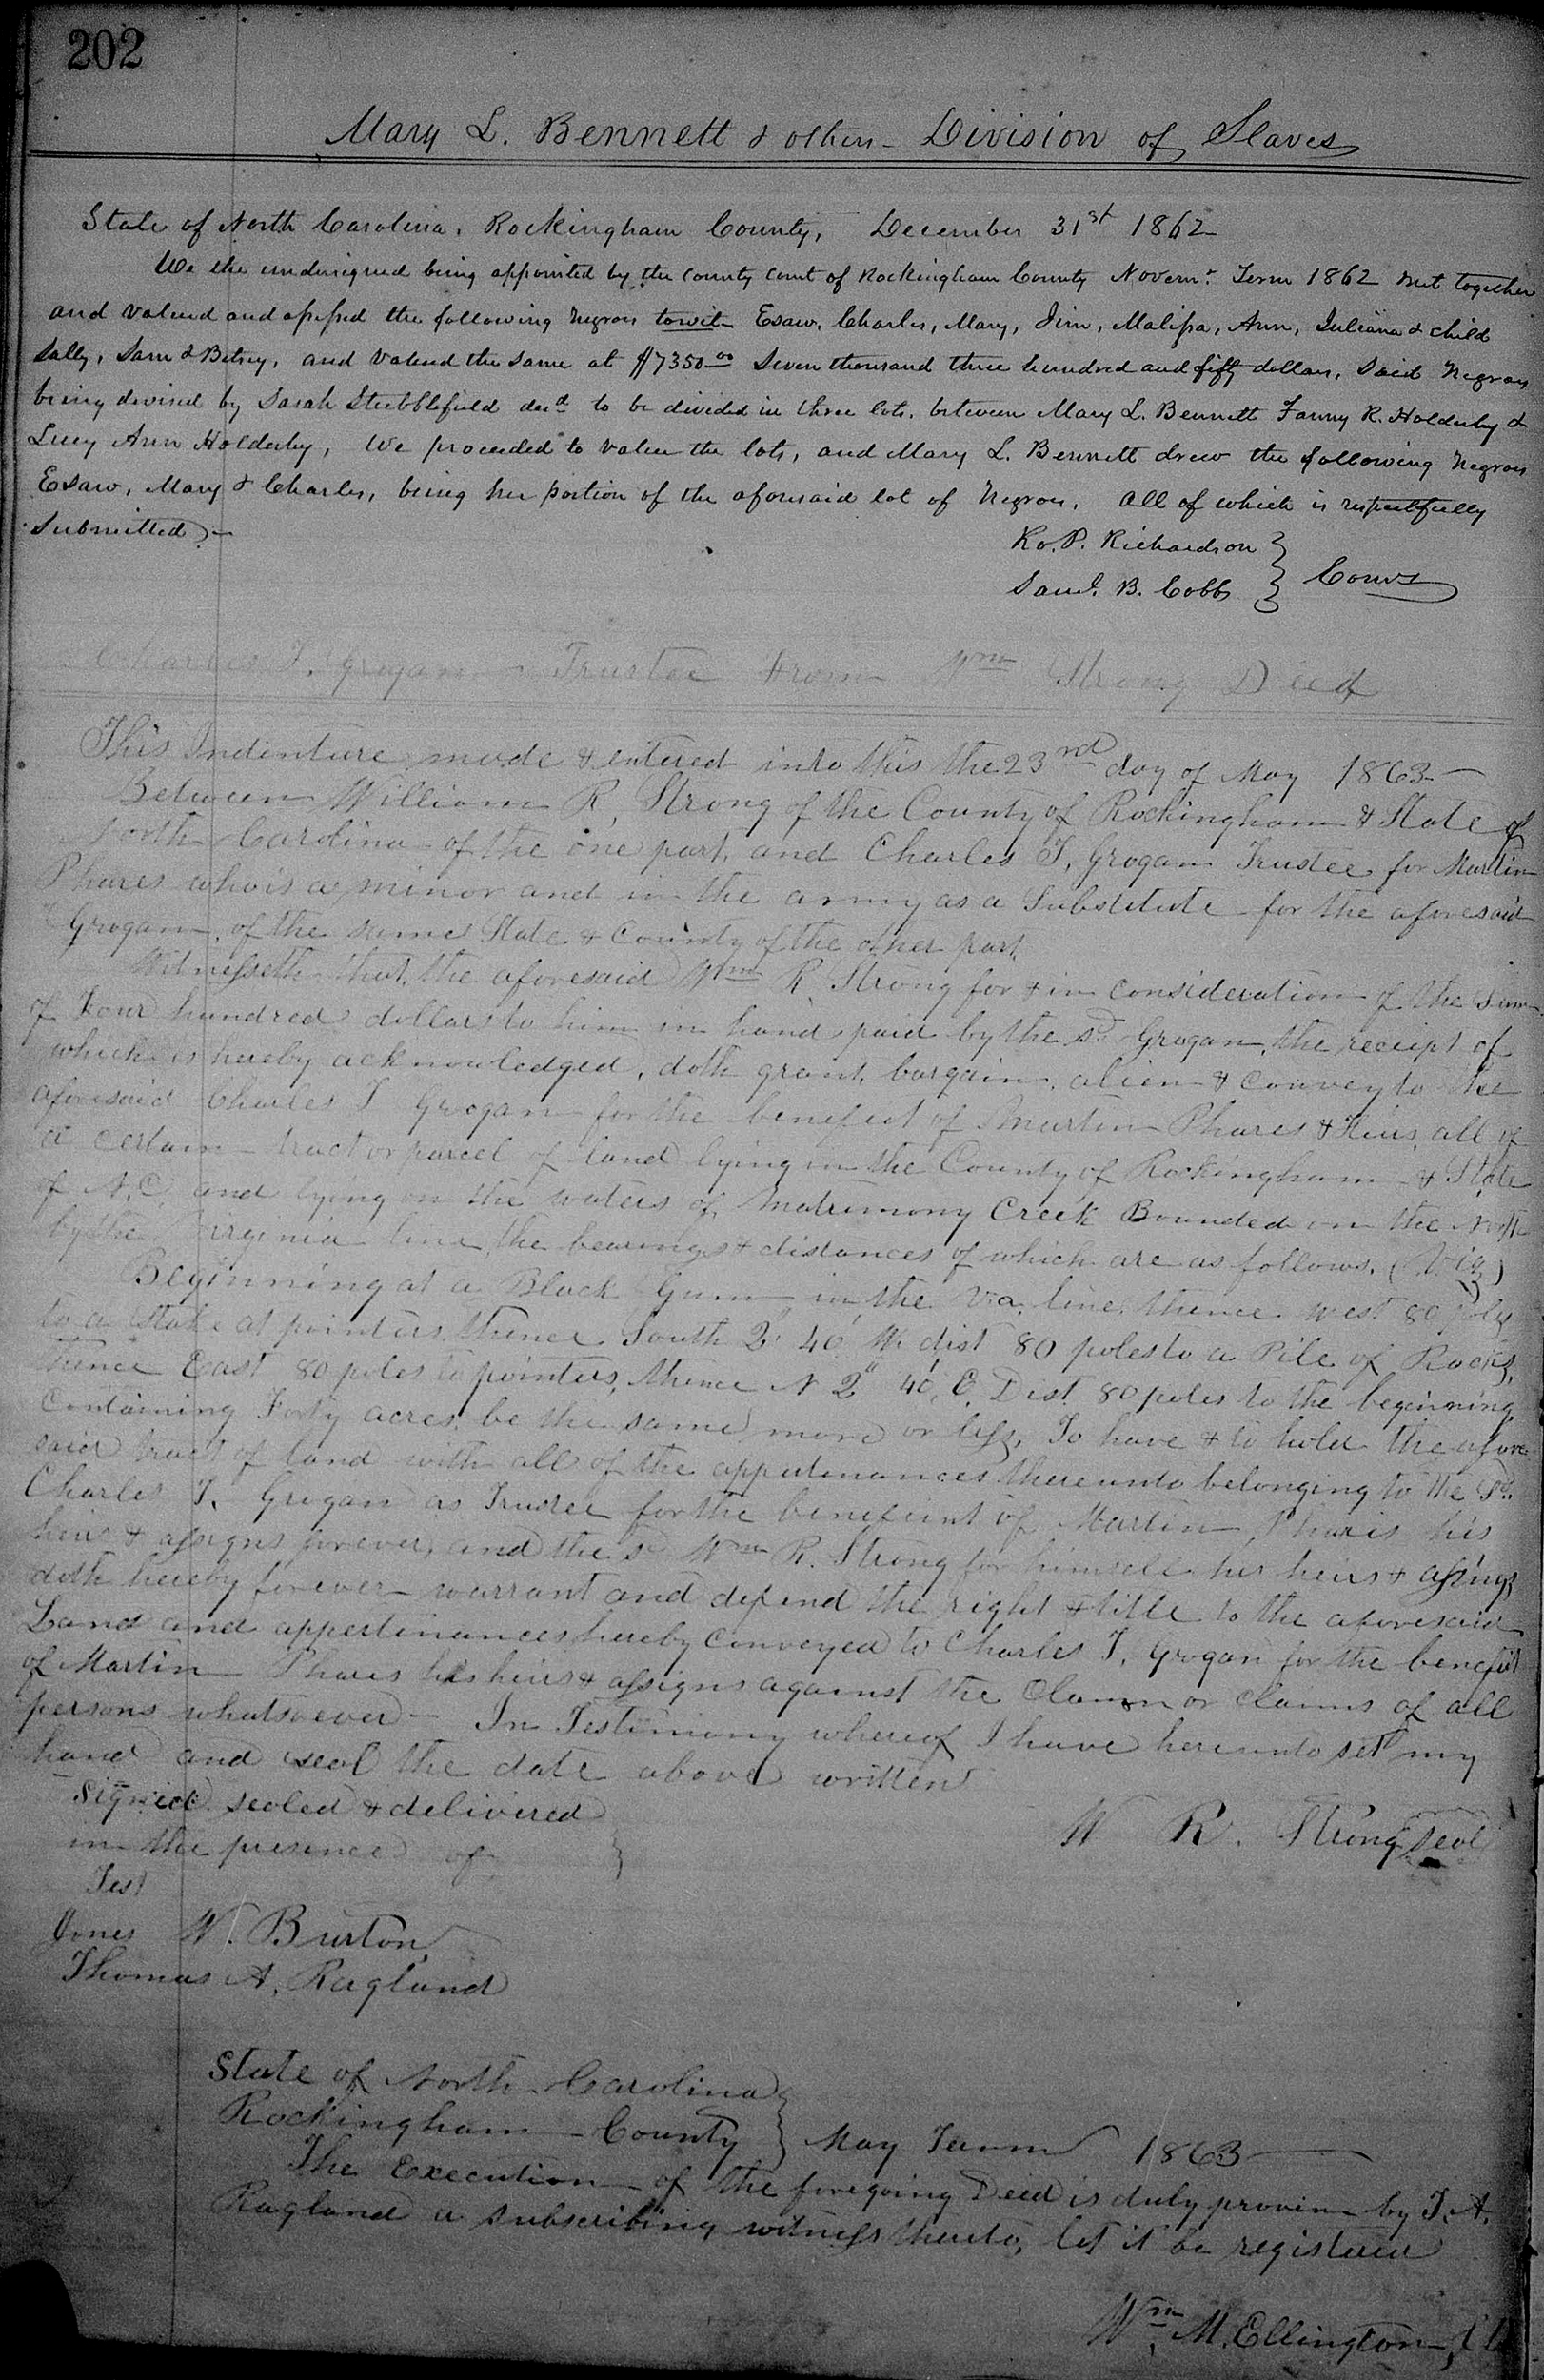 202
Mary L. Bennett & others - Division of Slaves
State of North Carolina, Rockingham County, December 31st 1862
We the undersigned being appointed by the County Court of Rockingham County Novem.r Term 1862 met together
and valued and assessed the following Negroes towit - Esaw, Charles, Mary, Jim, Malissa, Ann, Juliana & child
Sally, Sam & Betsey, and valued the same at $7350.00 Seven thousand three hundred and fifty dollars, Said Negroes
being devised by Sarah Stubblefield decd to be divided in three lots, between Mary L. Bennett Fanny R. Holderby &
Lucy Ann Holderby, We proceeded to value the lots, and Mary L. Bennett drew the following Negroes
Esaw, Mary & Charles, being her portion of the aforesaid lot of Negroes, All of which is respectfully
Submitted -
Ro. P. Richardson
Saml. B. Cobb } Coms
Charles T. Grogan - Trustee From Wm Strong Deed
This Indenture made & entered into this the 23rd day of May 1863 -
Between William R, Strong of the County of Rockingham & State of
North Carolina of the one part, and Charles T, Grogan Trustee for Martin
Phares who is a minor and in the army as a Substitute for the aforesaid
Grogan, of the same State & County of the other part,
Witnesseth that, the aforesaid Wm R Strong for & in consideration of the Sum
of Four hundred dollars to him in hand paid by the sd Grogan, the receipt of
which is hereby acknowledged, doth grant, bargain, alien & convey to the
aforesaid Charles T Grogan for the benefict of Martin Phares & Heirs, all of
a certain tract or parcel of land lying in the County of Rockingham & State
of N.C. and lying on the waters of Matrimony Creek Bounded on the North
by the Virginia line, the bearings & distances of which are as follows, (Viz)
Beginning at a Black Gum in the Va. line, thence west 80 poles
to a Stake at pointers, thence South 2° 40' W. dist 80 poles to a Pile of Rocks,
thence East 80 poles to pointers, thence N 2° 40' E. Dist. 80 poles to the beginning,
Containing Forty acres, be the same more or less, To have & to hold the afore
said tract of land with all of the appetenances thereunto belonging to the Sd.
Charles T. Grogan as Trustee for the beneficint of Martin Phares his
heirs & assigns forever, and the sd Wm R. Strong for himself his heirs & assings
doth hereby forever warrant and defend the right & title to the aforesaid
Land and appertinances hereby Conveyed to Charles T, Grogan for the benefict
of Martin Phares his heirs & assigns against the Claim or claims of all
persons whatsoever - In Testimony whereof I have hereunto set my
hand and seal the date above written
Signed sealed & delivered
in the presence of }
W R. Strong Seal
Test
Jones W. Burton,
Thomas A. Ragland
State of North Carolina
Rockingham County } May Term 1863
The Execution of the foregoing Deed is duly proven by T. A.
Ragland a subscribing witness thereto, let it be registered
Wm M. Ellington,